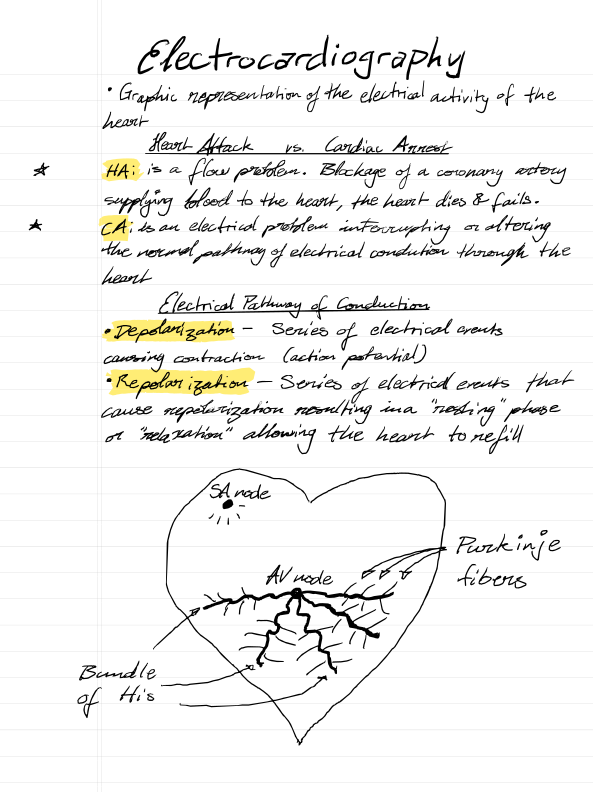 Electrocardiography
• Graphic representation of the electrical activity of the
heart
Heart Attack vs. Cardiac Arrest
HA: is a flow problem. Blockage of a coronary artery
supplying blood to the heart, the heart dies & fails.
CA: is an electrical problem interrupting or altering
the normal pathway of electrical condution through the
heart
Electrical Pathway of Conduction
• Depolarization – Series of electrical events
causing contraction (action potential)
• Repolarization – Series of electrical events that
cause repolarization resulting in a "resting" phase
or "relaxation" allowing the heart to refill
SA node
AV node
Purkinje
fibers
Bundle
of His